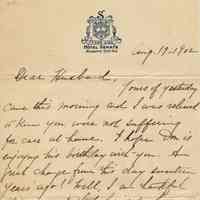 HOTEL SENATE
Aug 19-1902
Dear Husband,
Yours of yesterday
came this morning and I was relieved
to know you were not suffering
for care at home. I hope Don is
enjoying his birthday with you. A
great change from this day seventeen
years ago! Well, I am thankful